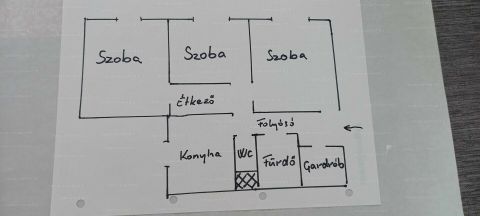 Szoba
Szoba
Szoba
Étkező
Folyósó
Konyha
WC
Fürdő
Gardrób